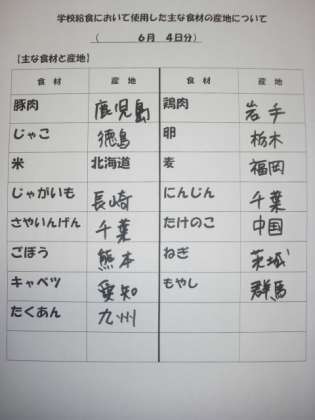 学校給食において使用した主な食材の産地について
( 6月 4日分)
【主な食材と産地】
食材 産地 食材 産地
豚肉 鹿児島 鶏肉 岩手
じゃこ 徳島 卵 栃木
米 北海道 麦 福岡
じゃがいも 長崎 にんじん 千葉
さやいんげん 千葉 たけのこ 中国
ごぼう 熊本 ねぎ 茨城
キャベツ 愛知 もやし 群馬
たくあん 九州